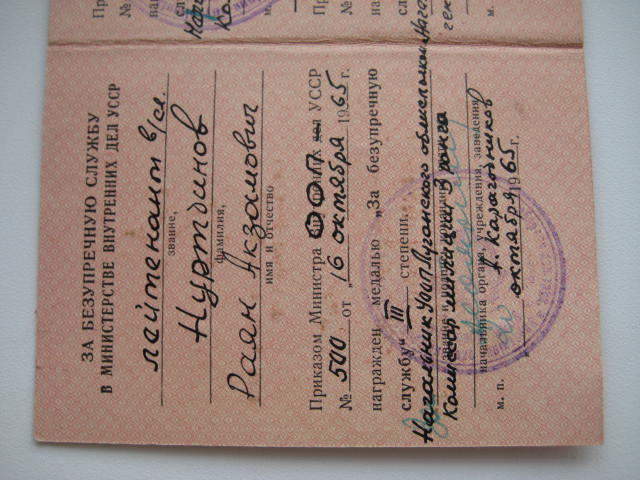 ЗА БЕЗУПРЕЧНУЮ СЛУЖБУ
В МИНИСТЕРСТВЕ ВНУТРЕННИХ ДЕЛ УССР
лейтенант в/сл.
звание,
Нуртдинов
фамилия,
Раян Акзамович
имя и отчество
Приказом Министра ООП УССР
№ 500 от „16 октября 1965 г.
награжден медалью „За безупречную
службу" III степени.
Начальник УООП Луганского облисполкома
Комиссар милиции 3 ранга
начальника органа, учреждения, заведения
А. Карагодников
октября 1965 г.
м. п.